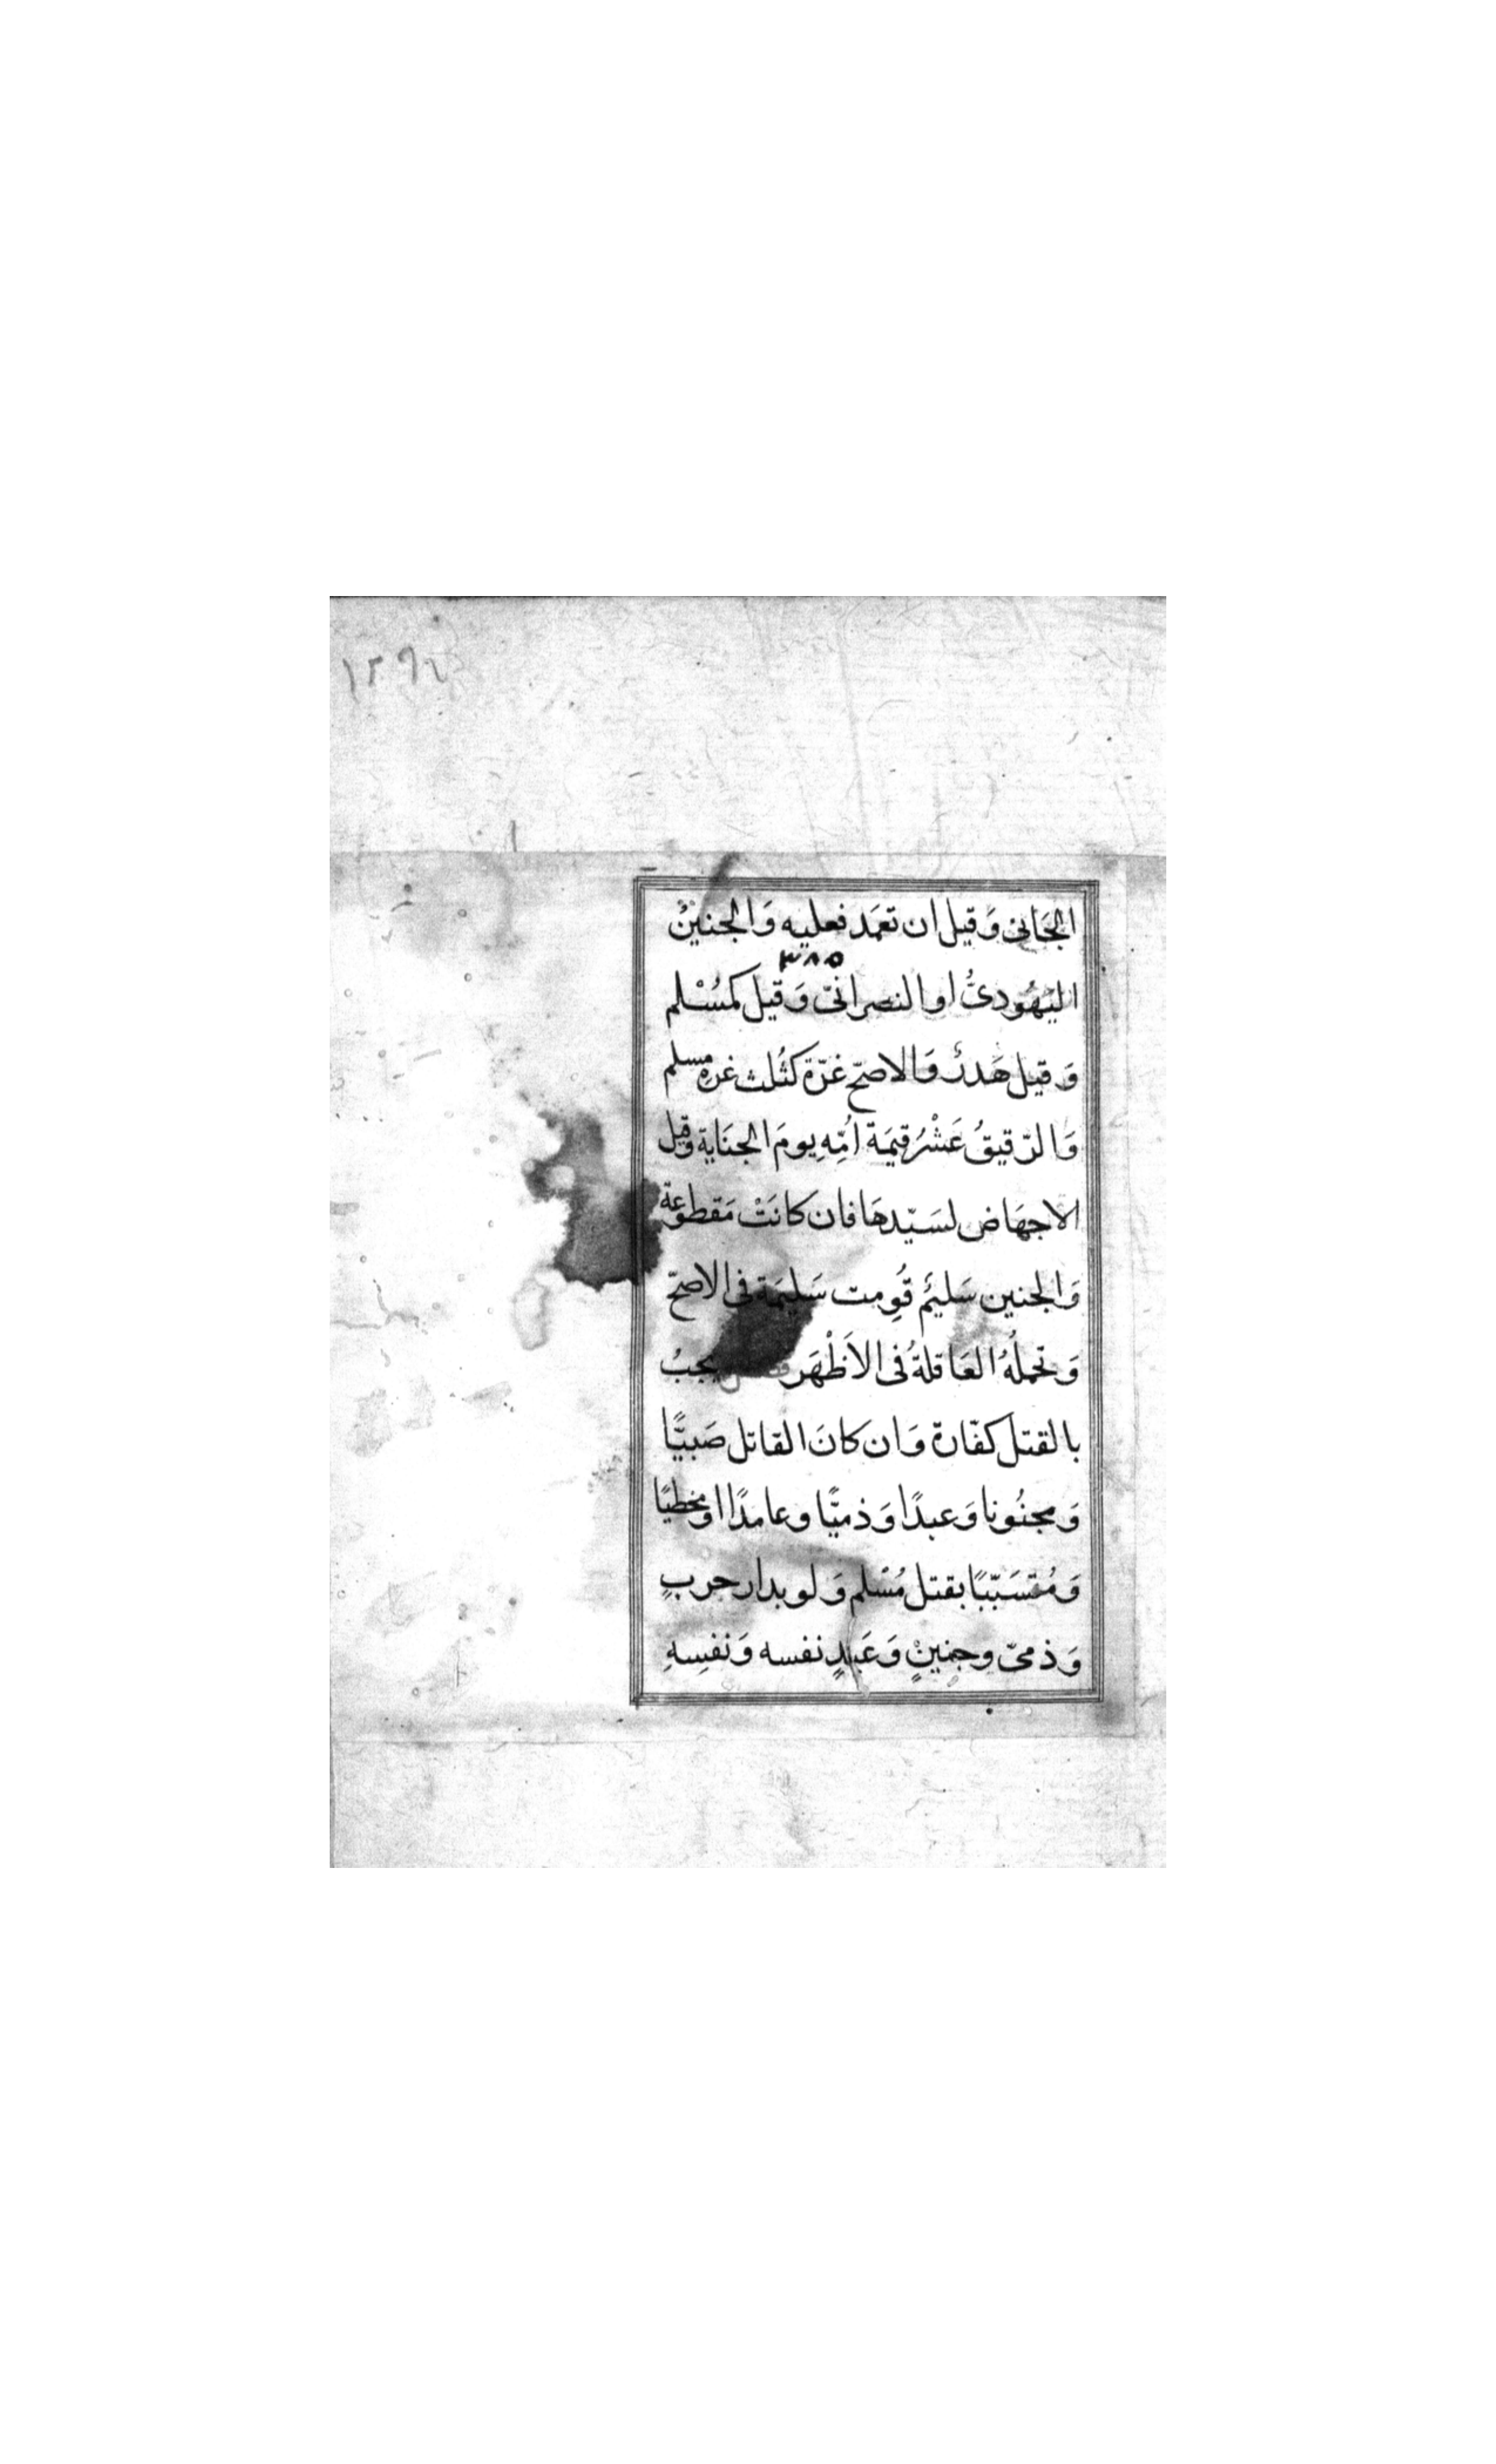 ١٢٩٦
الجَانِى وَقيل ان تعمَد فعليه وَالجنينُ
٣٨٥
اليَهُودىُّ او النصرانىّ وَقيل كمُسْلم
وَقيل هَدرٌ وَالاصحّ غرّة كثُلث غرةِ مسلم
وَالرّقيقُ عَشْرُ قيَمة امِّهِ يومَ الجنَاية وقيل
الاجهَاض لسَيّدهَا فان كانَتْ مَقطوعَة
وَالجنين سَليُم قُوِمت سَليَمة فى الاصحّ
وَتحملُهُ العَاقلةُ فى الاَظْهَر فصل يجبُ
بالقتل كفّارة وَان كانَ القاتل صَبيًّا
وَمجنُونا وَعبدًا وَذميًّا وعامدًا اومخطيًا
وَمُتسَبّبًا بقتل مُسْلم وَلو بدار حربٍ
وَذمىّ وجنِينٍْ وَعَبدٍ نفسه وَنفسِهِ